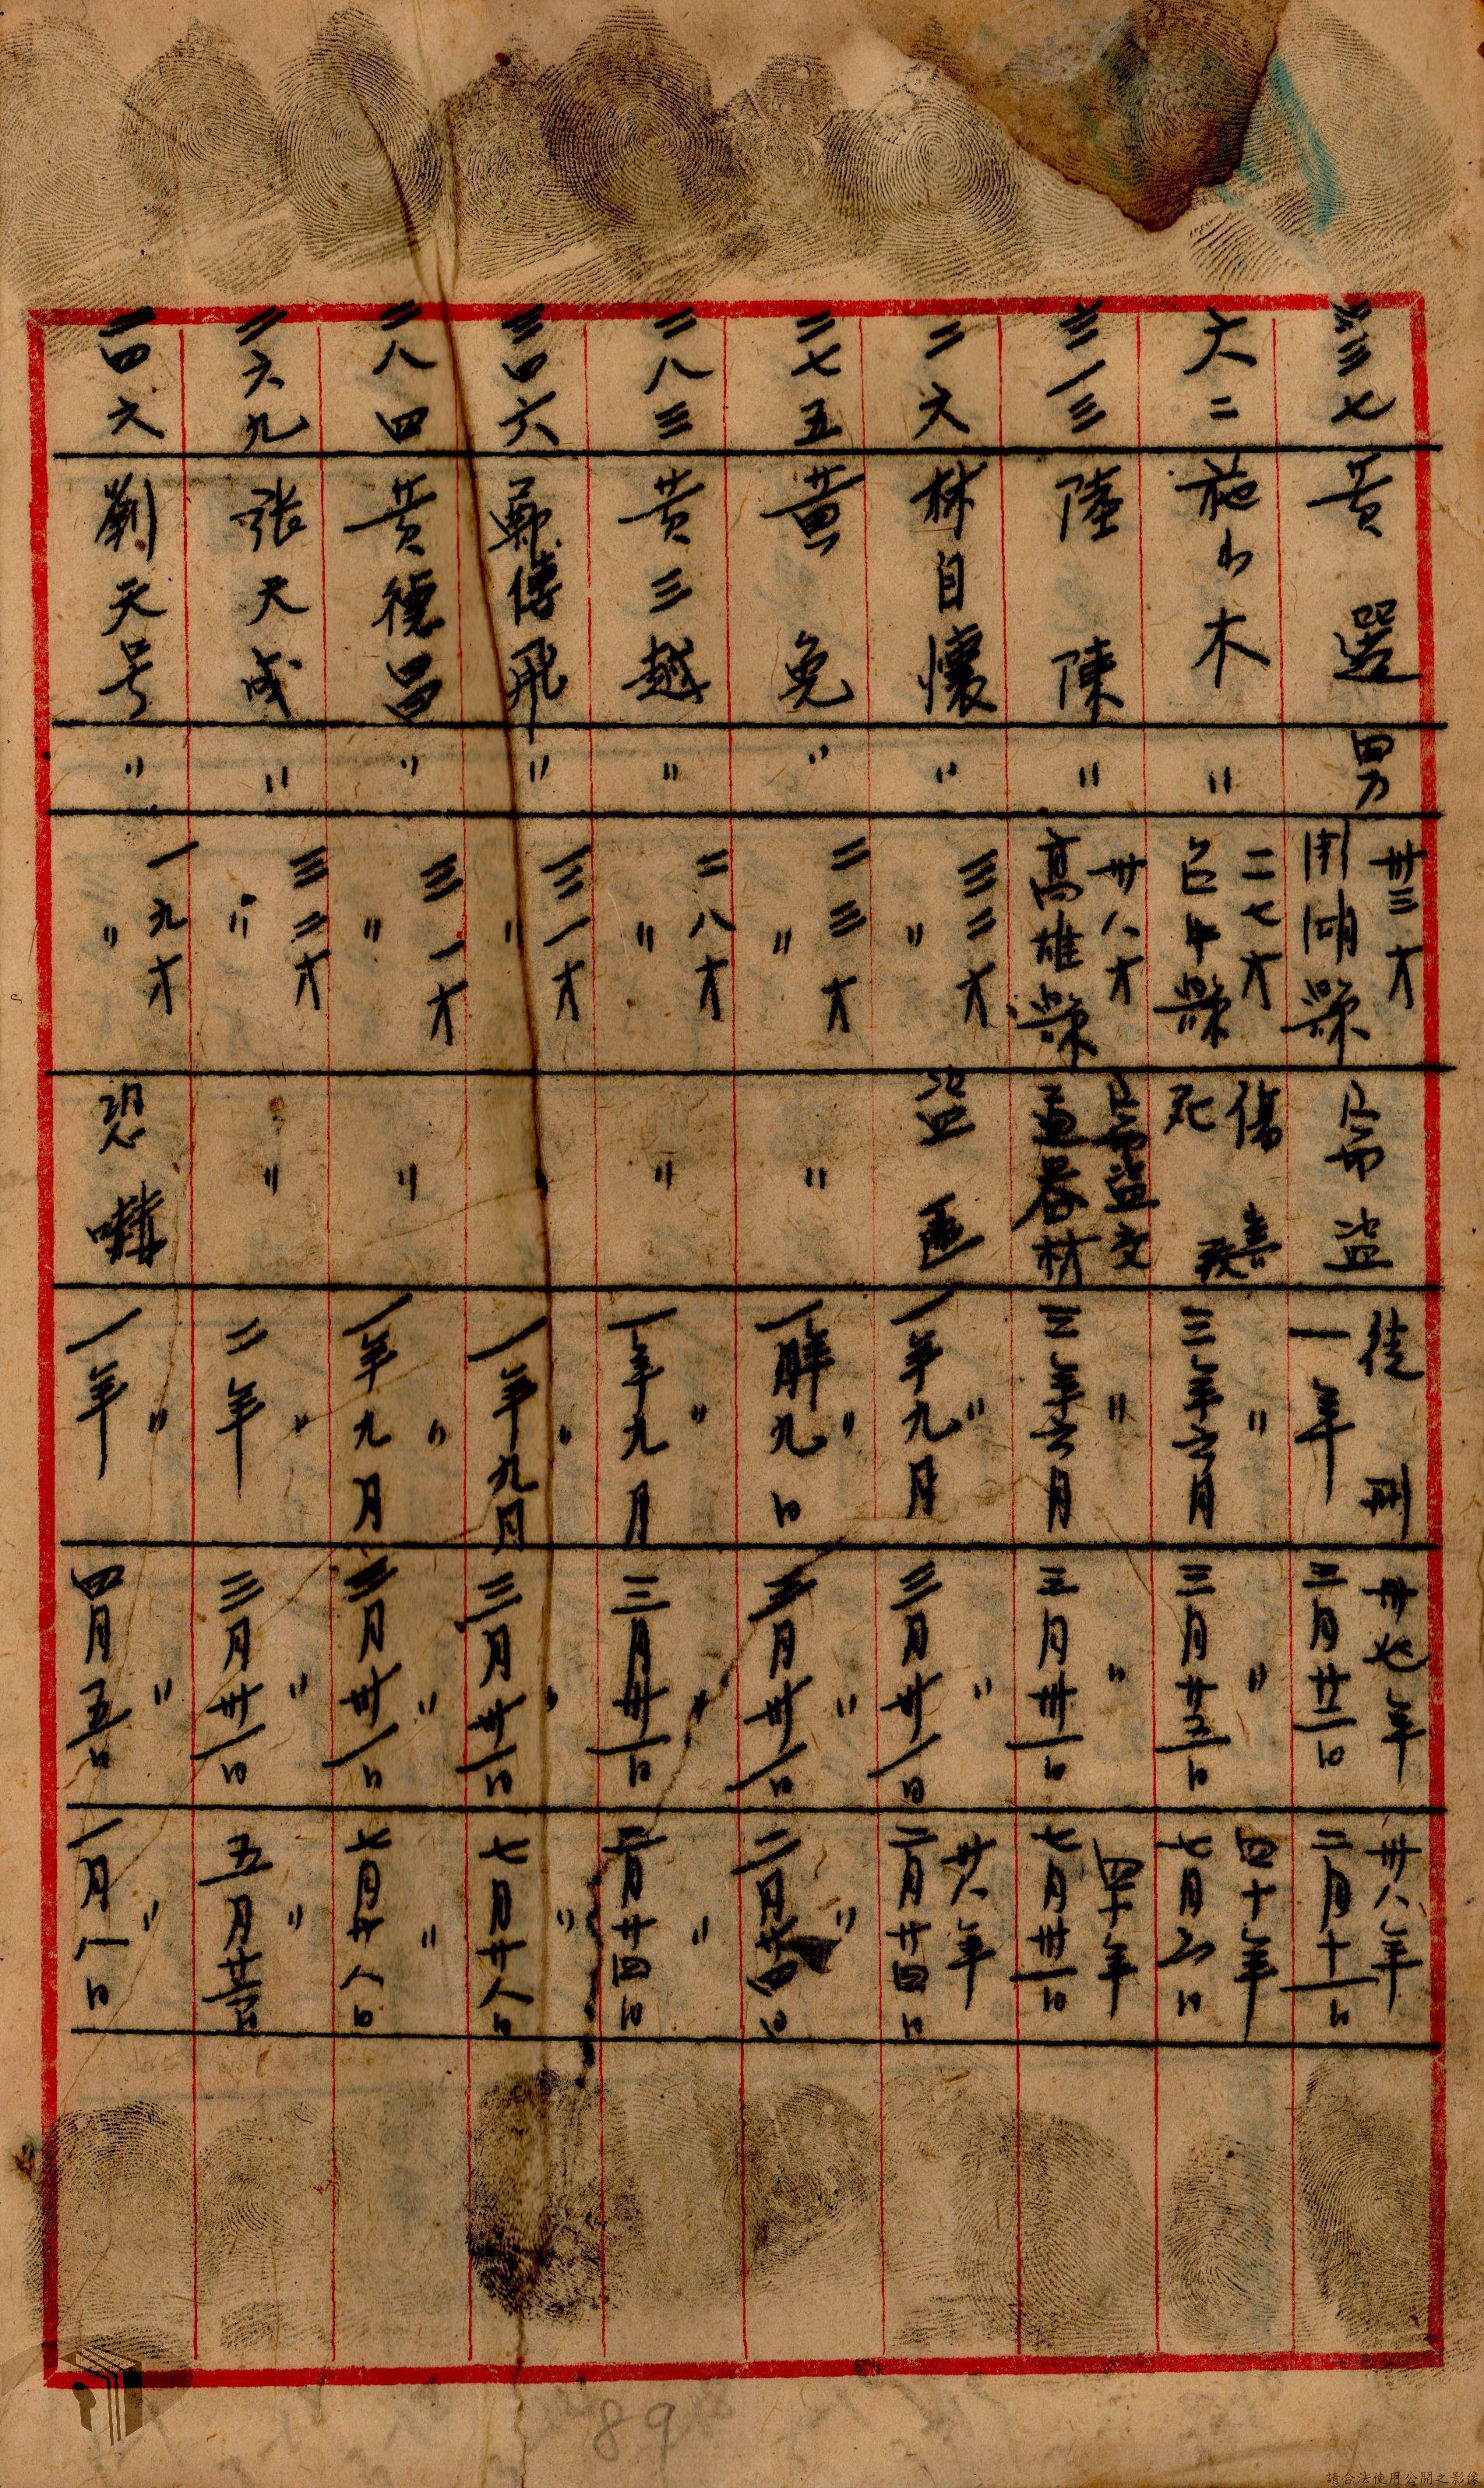 三七 黃選 男 卅三才 澎湖縣 竊盜 徒刑一年 卅七年三月廿二日 卅八年二月十一日
六二 施水木 〃 二七才 台中縣 傷害致死 〃三年六月 〃三月廿五日 四十年七月六日
三一三 陸陳 〃 卅八才 高雄縣 竊盜交通器材 〃三年六月 〃三月卅一日 四十年七月卅一日
二六 林自懷 〃 三二才 〃 盜匪 〃一年九月 〃三月卅一日 卅八年二月廿四日
二七五 黃兔 〃 二三才 〃 〃 〃一年九月 〃三月卅一日 〃二月廿四日
二八三 黃三越 〃 二八才 〃 〃 〃一年九月 〃三月卅一日 〃二月廿四日
三四六 鄭傳飛 〃 三一才 〃 〃一年九月 〃三月卅一日 〃七月廿八日
二八四 黃德昌 〃 三一才 〃 〃 〃一年九月 〃三月卅一日 〃七月廿八日
二六九 張天成 〃 三二才 〃 〃 〃二年 〃三月卅一日 〃五月
二四六 劉天号 〃 一九才 〃 恐嚇 〃一年 〃四月五日 〃一月八日
89
請合法使用公開之影像